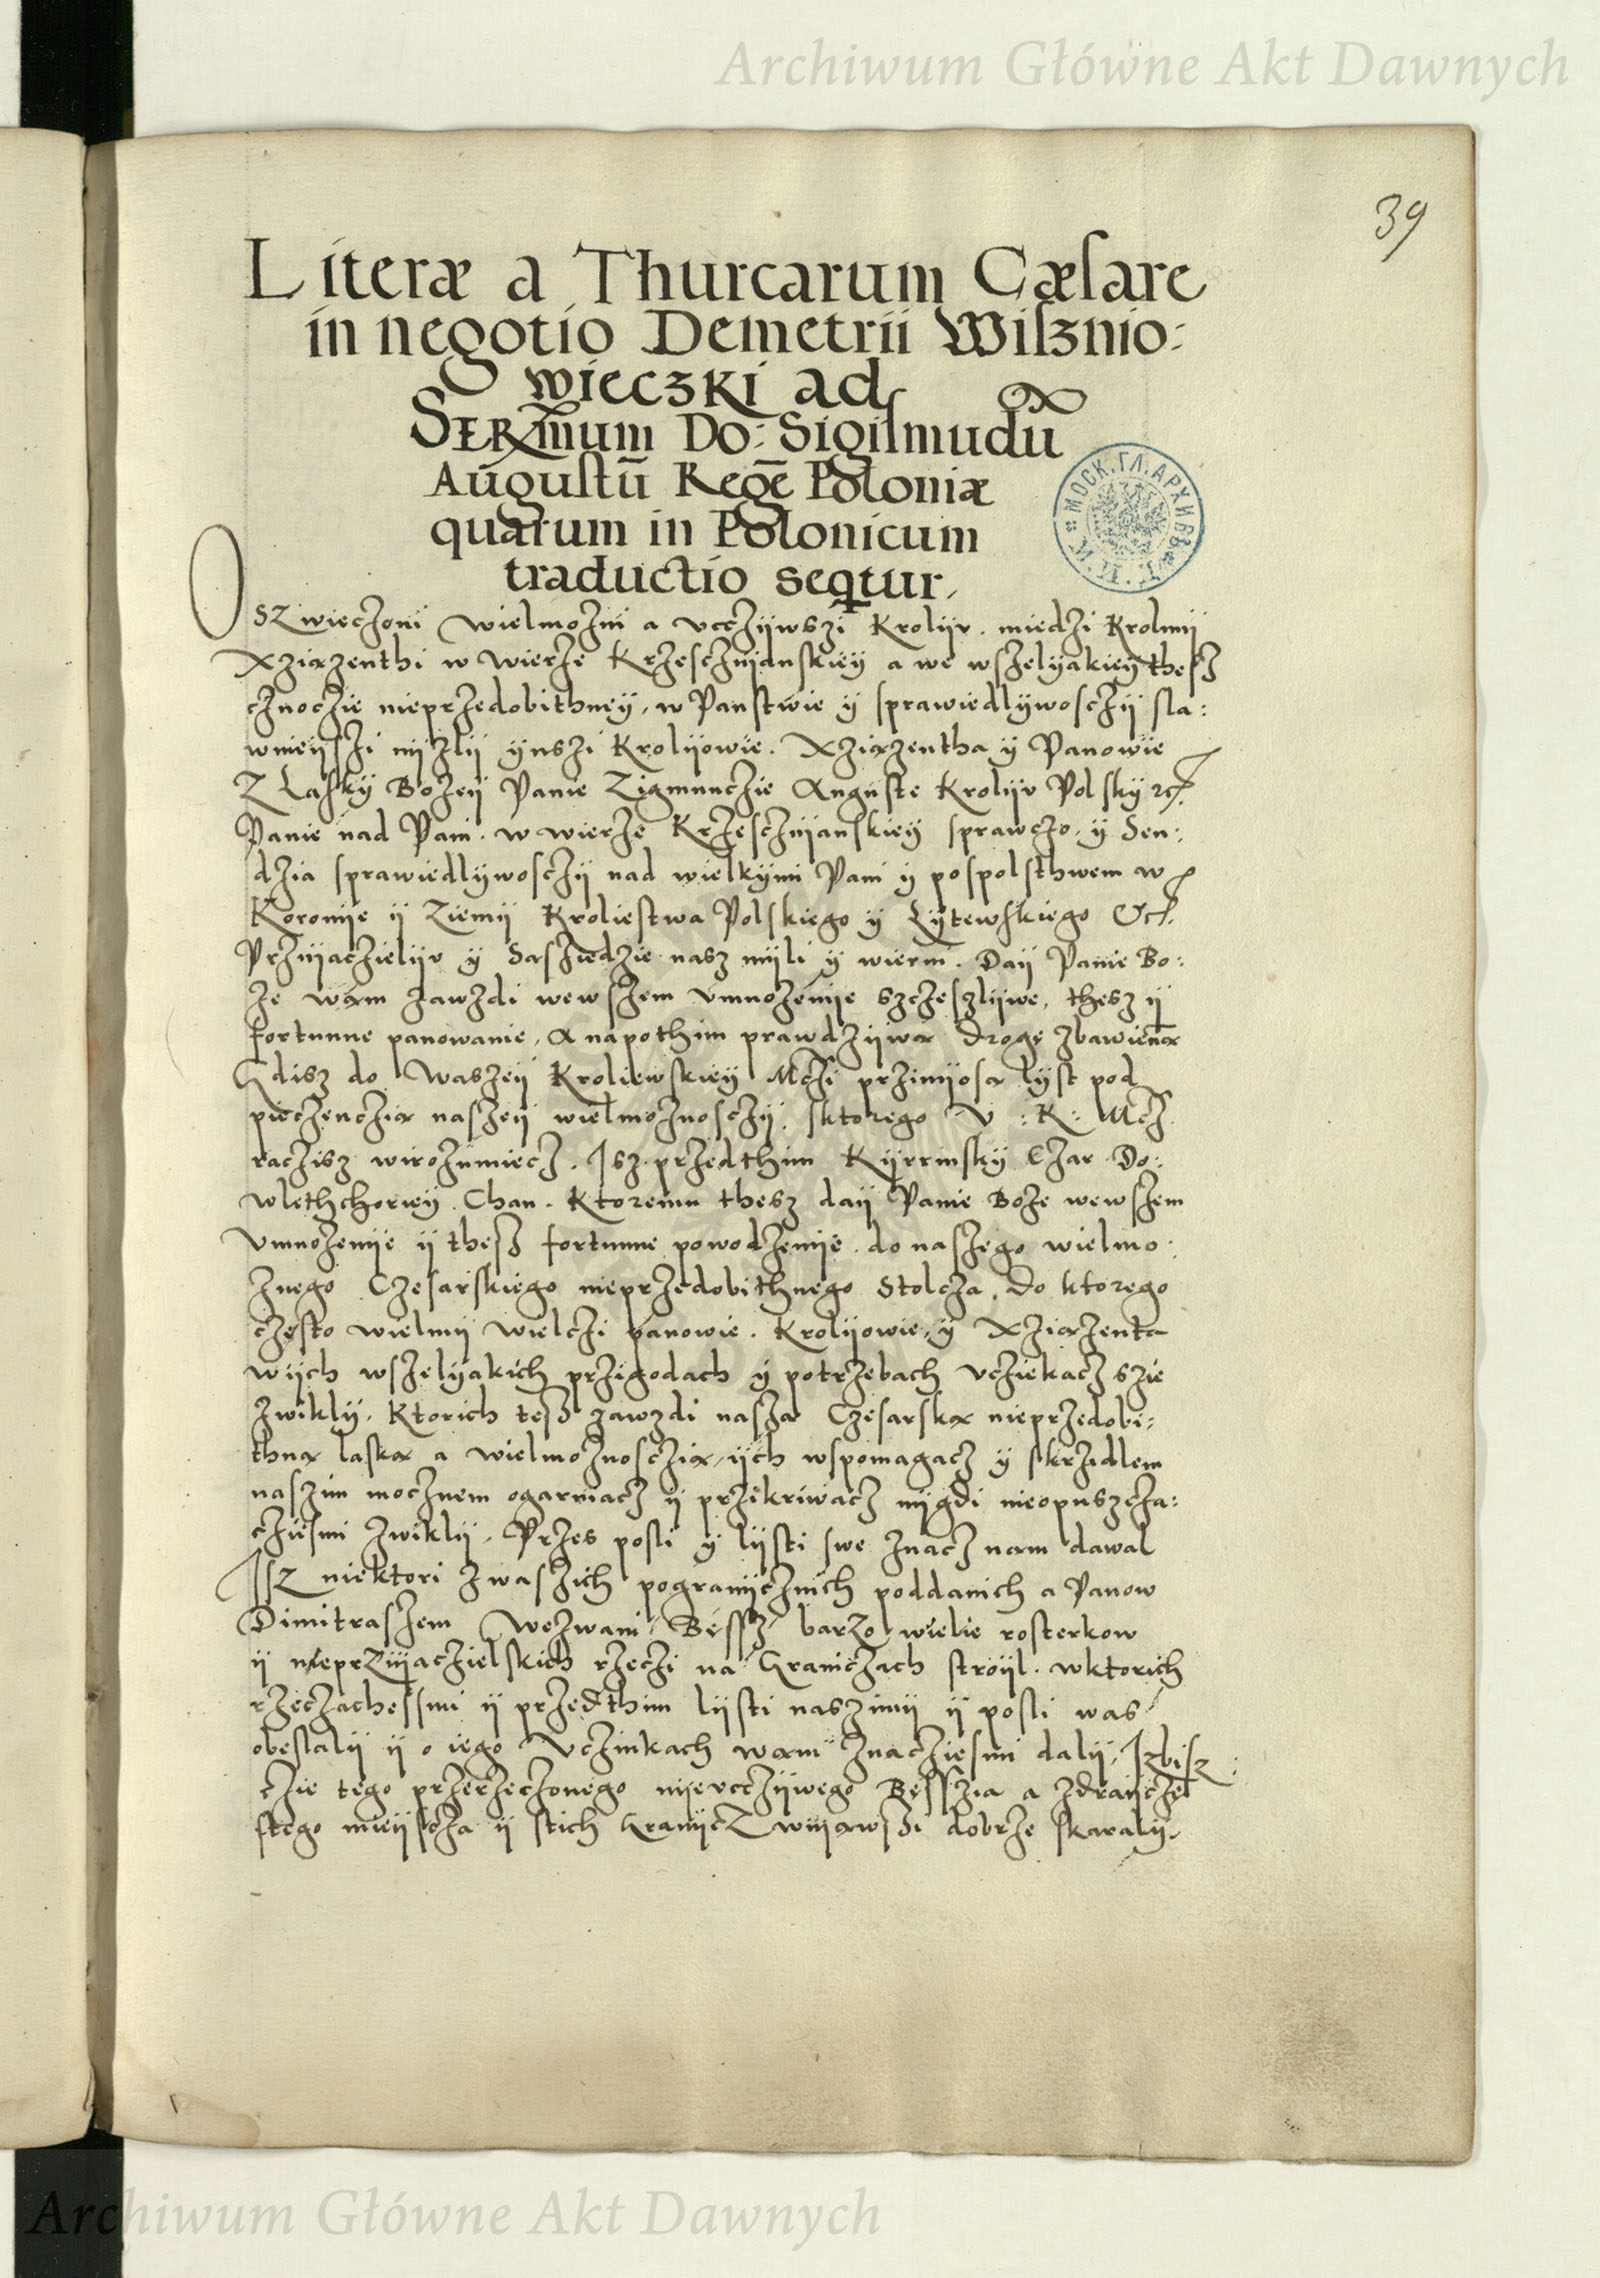 Archiwum Główne Akt Dawnych
39
Literæ a Thurcarum Cæsare
in negotio Demetrii Wisznio:
wieczki ad
Serm̄um Do: Sigismudū
Augustū Regē Poloniæ
quarum in Polonicum
traductio seqtur,
МОСК. ГЛ. АРХИВЪ
Oszwieczoni Wielmozni a vcczijwszi Krolijv. miedzi Krolmij
Xziazenthi w Wierze Krzescznijanskieÿ a we wszelÿakieÿ thesz
cznoczie nieprzedobithneÿ, w Panstwie ÿ sprawiedlÿwosczij sla:
wnieÿszi nijzlij ÿnszi Krolijowie. Xziazentha ÿ Panowie
Z Laskÿ Bozeij Panie Zigmunczie Auguste Krolijv Polskÿ etc.
Panie nad Pani. w wierze Krzescznijanskieÿ sprawczo, ÿ Sen:
dzia sprawiedlÿwosczij nad wielkÿmi Pani ÿ pospolsthwem w
Koronije ij Ziemij Kroliestwa Polskiego ÿ Lÿtewskiego Etc.
Prznijaczielijv ÿ Sasziedzie nasz mijli ÿ wierni. Daij Panie Bo:
ze wam zawzdi wewszem vmnozenije szczeszlijwe, thesz ij
fortunne panowanie, A napothim prawdzijwa droge zbawiena
Gdisz do Waszeij Kroliewskieÿ Mczi przinijosa lÿst pod
pieczenczia naszeij wielmoznosczij, sktorego V: K: Mcz
raczisz wirozumiecz. Isz przedthim Kÿrrinskÿ Czar Do:
wlethchorieÿ Chan. Ktoremu thesz daij Panie Boze wewszem
vmnozenije ij thesz fortunne powodzenije. do naszego wielmo:
znego Czesarskiego nieprzedobithnego Stolcza, do ktorego
często wielmij wielczi panowie. Krolijowie, ÿ Xziazenta
wijch wszelÿakich przigodach ÿ potrzebach vcziekacz szie
zwiklÿ, Ktorich tesz zawzdi nasza Czesarska nieprzedobi:
thna laska a wielmoznosczia, ijch wspomagacz ÿ skrzidlem
naszim mocznem ogarniacz ij przikriwacz nijgdi nieopuszcza:
cziesmi zwiklij. Przes posli ÿ lijsti swe znacz nam dawal
Isz niektori zwaszich pogranijcznich poddanich a Panow
Dimitraszem Wezwani Bessz barzo wielie rosterkow
ij nieprzijaczielskich rzeczi na Graniczach stroijl. wktorich
rzeczachesmi ij przedthim lijsti naszimij ij posli was
obestalij ij o iego Vczinkach wam znacziesmi dalij, Izbisz
czie tego przerzeczonego nijevcczijwego Besszia a zdraijcze
stego mieijscza ij stich Granijcz zwijawszi dobrze skaralij,
Archiwum Główne Akt Dawnych